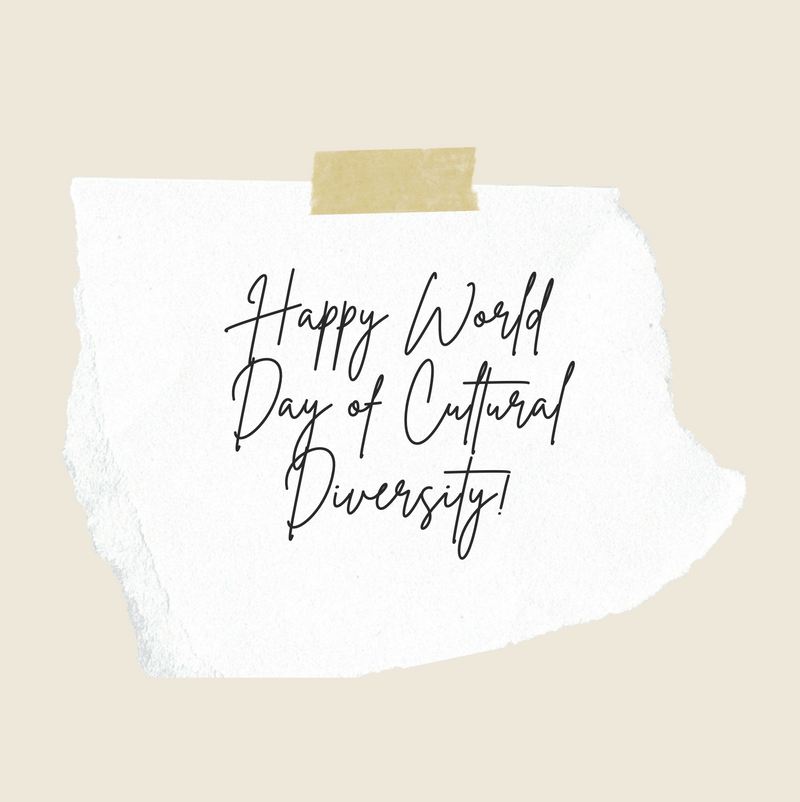 Happy World
Day of Cultural
Diversity!